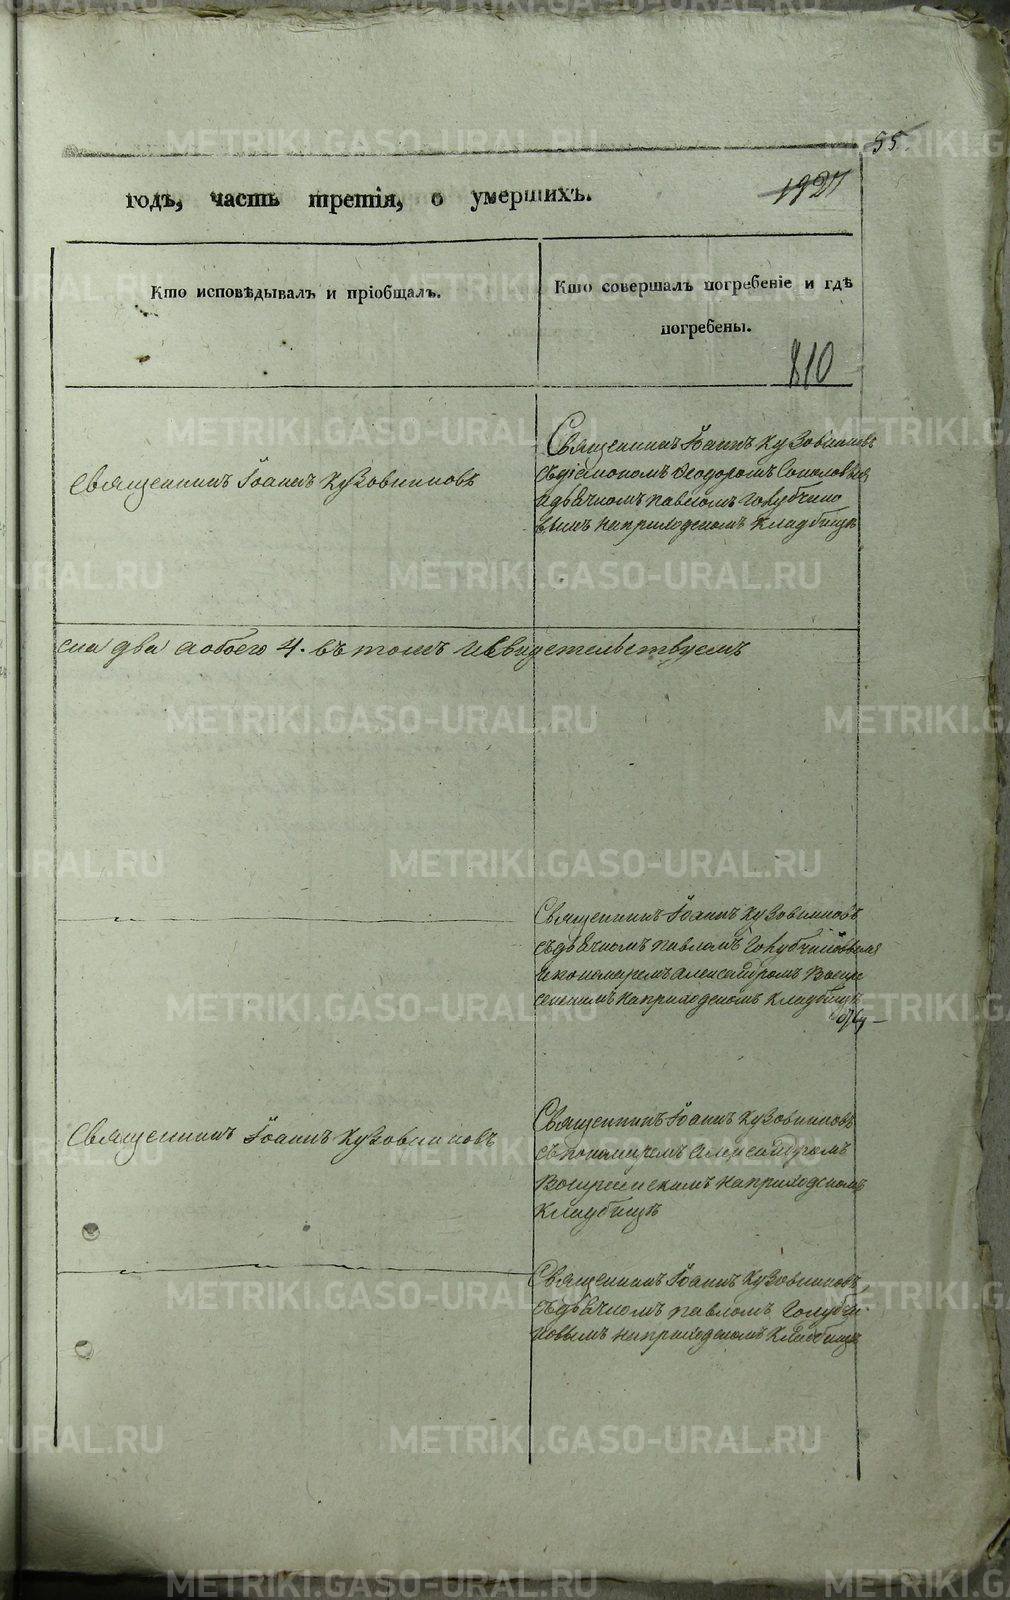 55
годъ, часть третія, о умершихъ.
1927
Кто исповѣдывалъ и пріобщалъ.
Кто совершалъ погребеніе и гдѣ
погребены.
810
Священникъ Іоаннъ Кузовниковъ
Священникъ Іоаннъ Кузовниковъ
съ діакономъ Ѳеодоромъ
и дьячкомъ павломъ Голубчико
вымъ наприходскомъ кладбищѣ
два а обоего 4. въ томъ и свидетельствуемъ
Священникъ Іоаннъ Кузовниковъ
съ дьячкомъ павломъ Голубчиковымъ
и пономаремъ александромъ Воскре
сенскимъ наприходскомъ кладбищѣ
Священникъ Іоаннъ Кузовниковъ
Священникъ Іоаннъ Кузовниковъ
съ пономаремъ александромъ
Воскресенскимъ наприходскомъ
кладбищѣ
Священникъ Іоаннъ Кузовниковъ
съ дьячкомъ павломъ Голубчи
ковымъ наприходскомъ кладбищѣ
METRIKI.GASO-URAL.RU